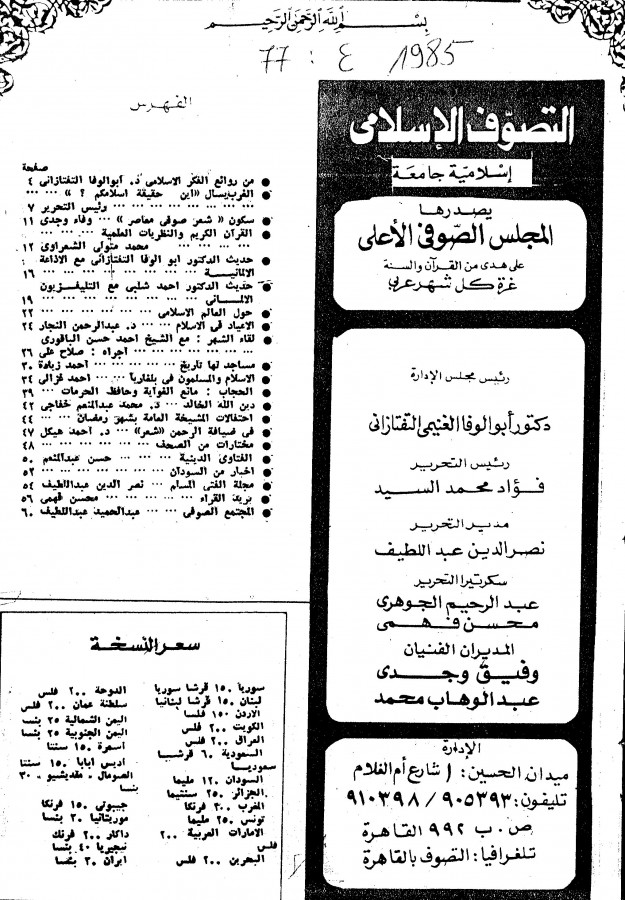 بِسْمِ اللَّهِ الرَّحْمَنِ الرَّحِيمِ
77 : ٤ 1985
التصوّف الإسلامى
إسلاميّة جامعَة
يصدرها
المجلس الصّوفى الأعلى
على هدى من القرآن والسنة
غرة كل شهر عربي
رئيس مجلس الإدارة
دكتور أبو الوفا الغنيمى التفتازانى
رئيس التحرير
فؤاد محمد السيد
مدير التحرير
نصر الدين عبد اللطيف
سكرتيرا التحرير
عبد الرحيم الجوهرى
محسن فهمى
المديران الفنيان
وفيق وجدى
عبد الوهاب محمد
الإدارة
ميدان الحسين : ١ شارع أم الغلام
تليفون : ٩٠٥٣٩٣ / ٩١٠٣٩٨
ص . ب ٩٩٢ القاهرة
تلغرافيا : التصوف بالقاهرة
الفهرس
صفحة
● من روائع الفكر الاسلامى د. أبو الوفا التفتازانى ٤
● الغرب يسأل «اين حقيقة اسلامكم ؟ » ... ...
... ... ... ... ... ... رئيس التحرير ٧
● سكون « شعر صوفى معاصر » ... وفاء وجدى ١١
● القرآن الكريم والنظريات العلمية ... ... ...
... ... ... ... محمد متولى الشعراوى ١٢
● حديث الدكتور ابو الوفا التفتازانى مع الاذاعة
الالمانية ... ... ... ... ... ... ... ١٦
● حديث الدكتور احمد شلبى مع التليفزيون
الالمانى ... ... ... ... ... ... ... ١٩
● حول العالم الاسلامى ... ... ... ... ... ٢٢
● الاعياد فى الاسلام ... ... د. عبدالرحمن النجار ٢٤
● لقاء الشهر : مع الشيخ احمد حسن الباقورى
... ... ... ... ... أجراه : صلاح على ٢٦
● مساجد لها تاريخ ... ... ... ... أحمد زيادة ٣٠
● الاسلام والمسلمون فى بلغاريا ... ... احمد غزالى ٣٤
● الحجاب : مانع الغواية وحافظ الحرمات ... ... ٣٩
● دين الله الخالد ... د. محمد عبدالمنعم خفاجى ٤٢
● احتفالات المشيخة العامة بشهر رمضان ... ... ٤٤
● فى ضيافة الرحمن «شعر» ... د. أحمد هيكل ٤٧
● مختارات من الصحف ... ... ... ... ... ٤٨
● الفتاوى الدينية ... ... ... حسن عبدالمنعم ٥٠
● اخبار من السودان ... ... ... ... ... ... ٥٢
● مجلة الفتى المسلم ... نصر الدين عبداللطيف ٥٤
● بريد القراء ... ... ... ... ... محسن فهمى ٥٦
● المجتمع الصوفى ... ... عبدالحميد عبداللطيف ٦٠
سعر النسخة
سوريا ١٥٠ قرشا سوريا
لبنان ١٥٠ قرشا لبنانيا
الأردن ١٥٠ فلسا
الكويت ٢٠٠ فلس
العراق ٢٠٠ فلس
السعودية ٦٠ قرشا
سعوديا
السودان ١٢٠ مليما
الجزائر ٢٥٠ سنتيما
المغرب ٣٠٠ فرنكا
تونس ٢٥٠ مليما
الامارات العربية ٢٠٠
فلس
البحرين ٢٠٠ فلس
الدوحة ٢٠٠ فلس
سلطنة عمان ٢٠٠ فلس
اليمن الشمالية ٢٥ بنسا
اليمن الجنوبية ٢٥ بنسا
اسمرة ١٥٠ سنتا
اديس ابابا ١٥٠ سنتا
الصومال - مقديشيو ٣٠
بنسا
جيبوتى ١٥٠ فرنكا
موريتانيا ٣٠ بنسا
داكار ٢٠٠ فرنك
نيجيريا ٤٠ بنسا
ايران ٣٠ بنسا